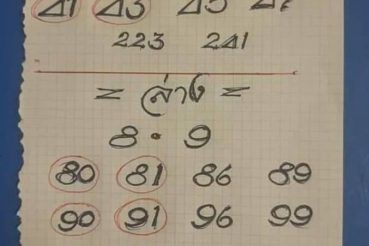 41 43 45 47
223 241
= ล่าง =
8 · 9
80 81 86 89
90 91 96 99